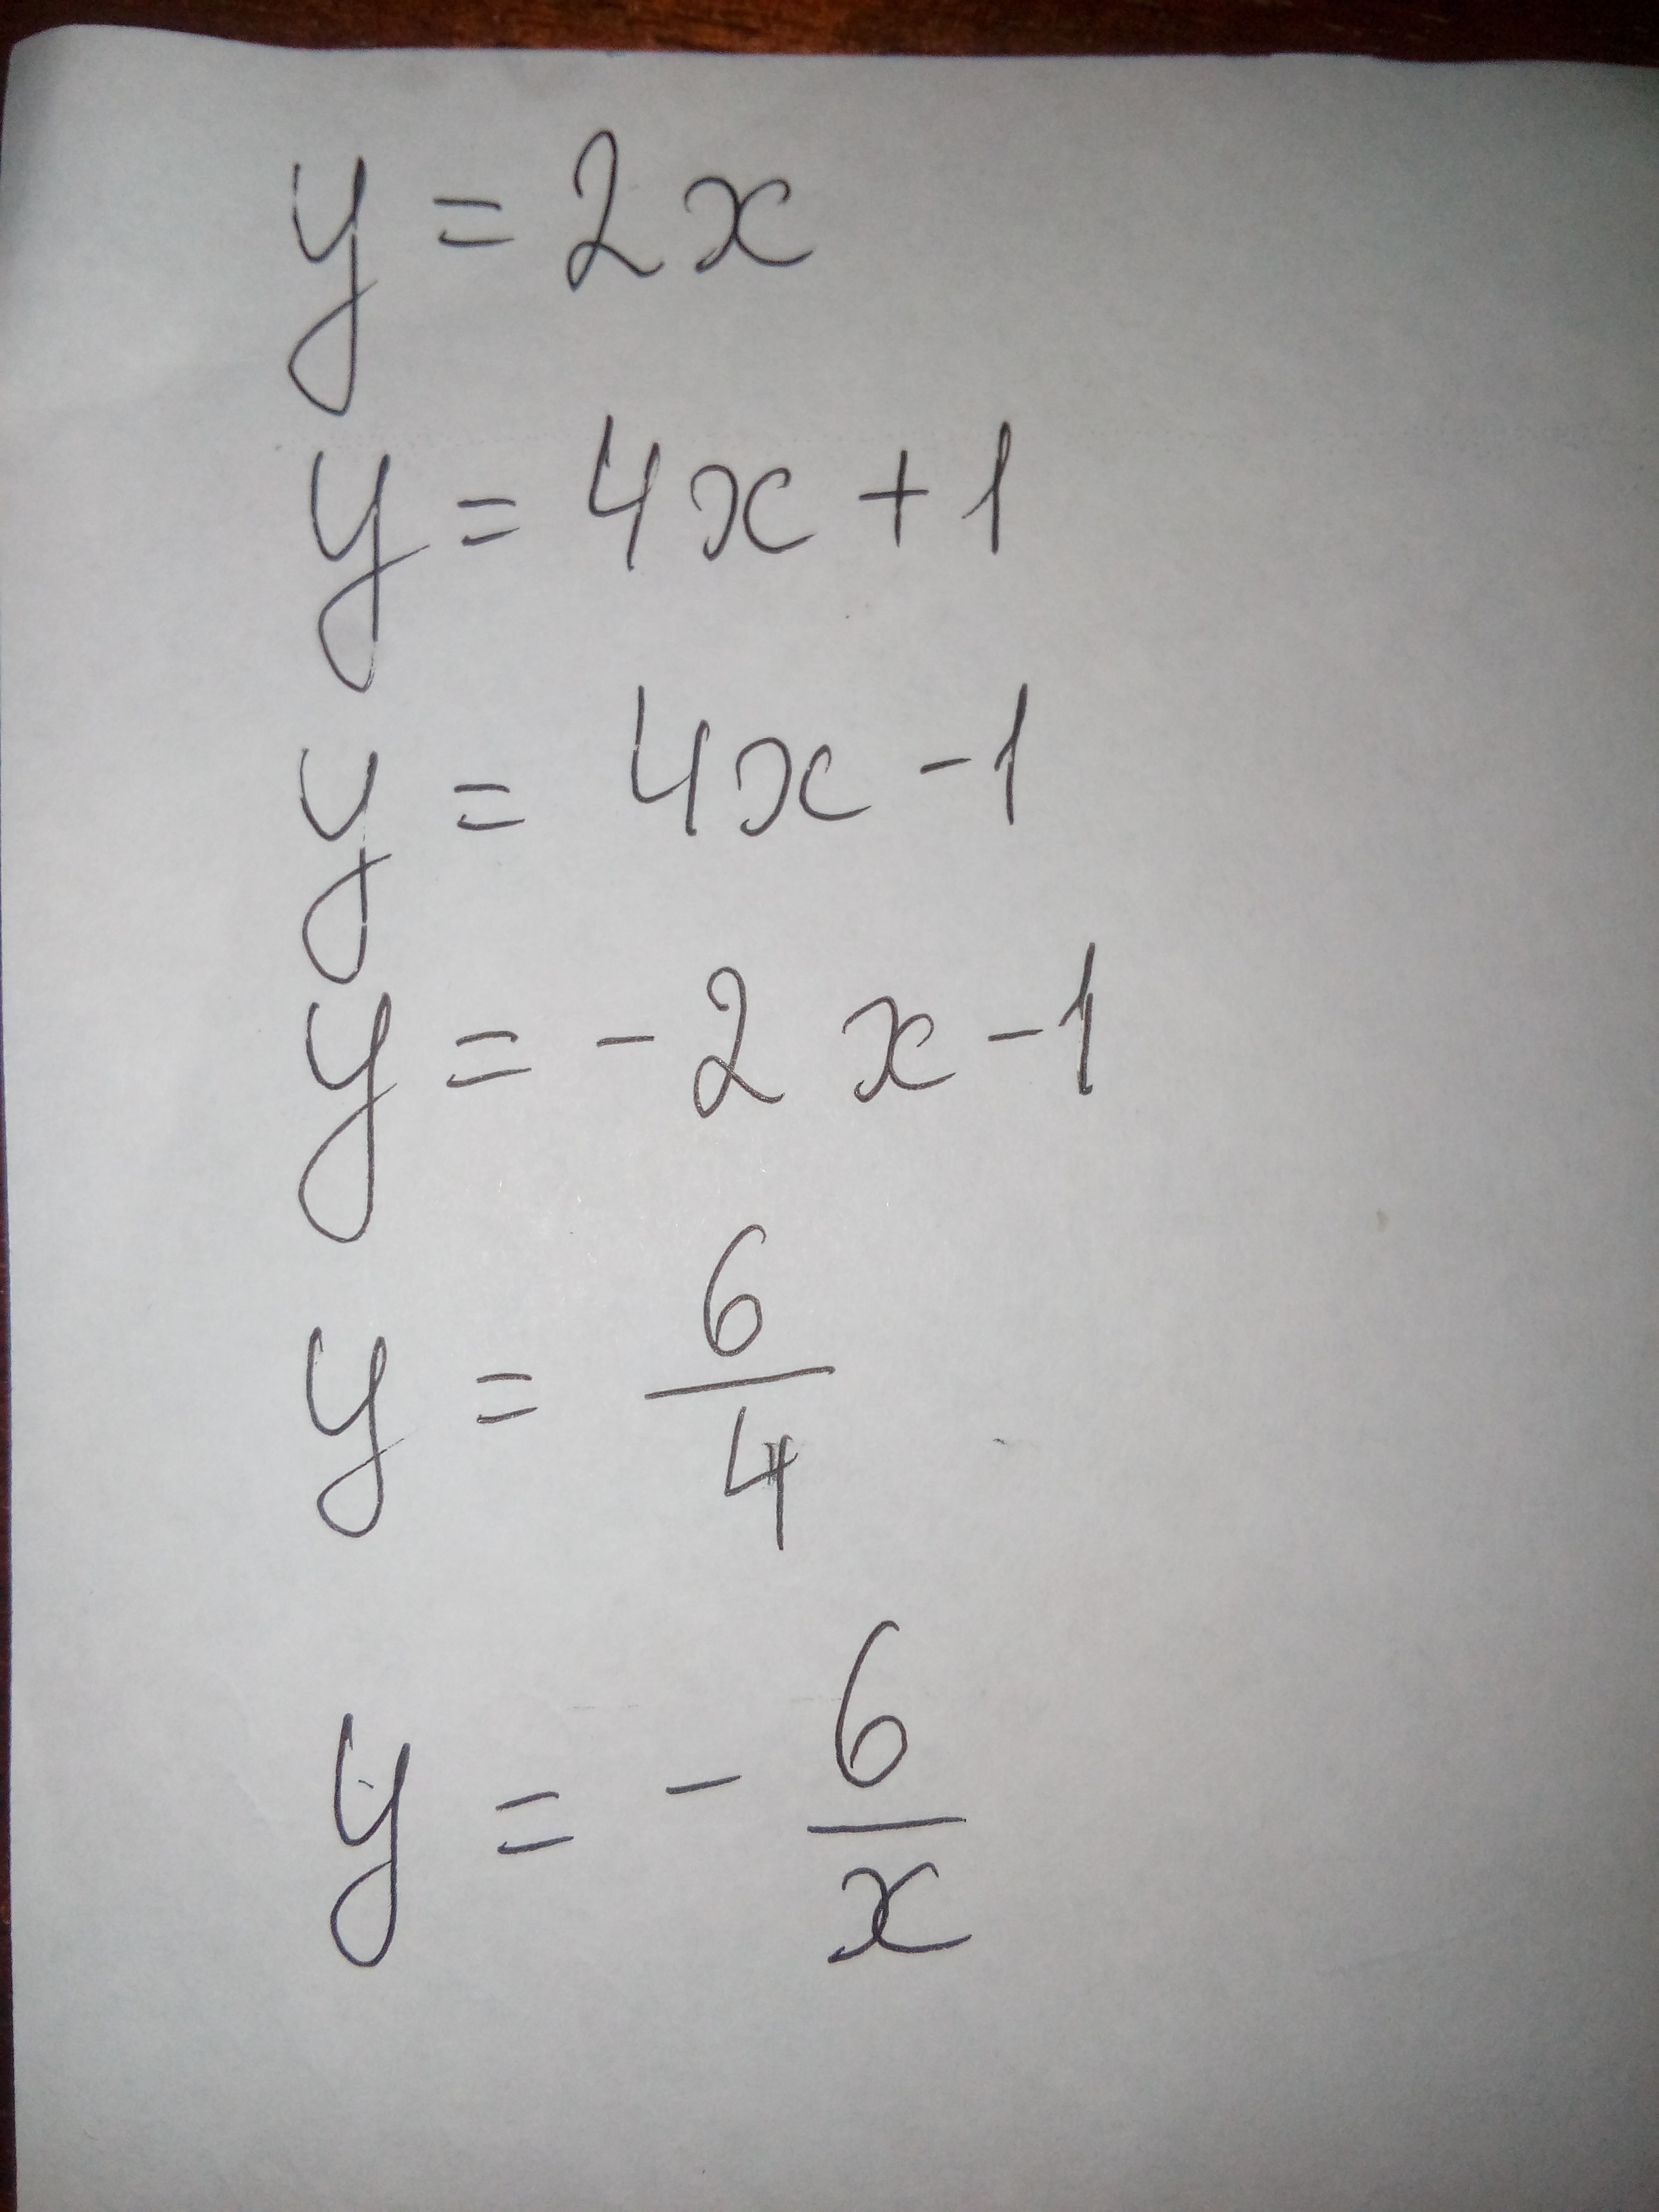 y = 2x
y = 4x + 1
y = 4x - 1
y = -2x - 1
y = 6/4
y = - 6/x